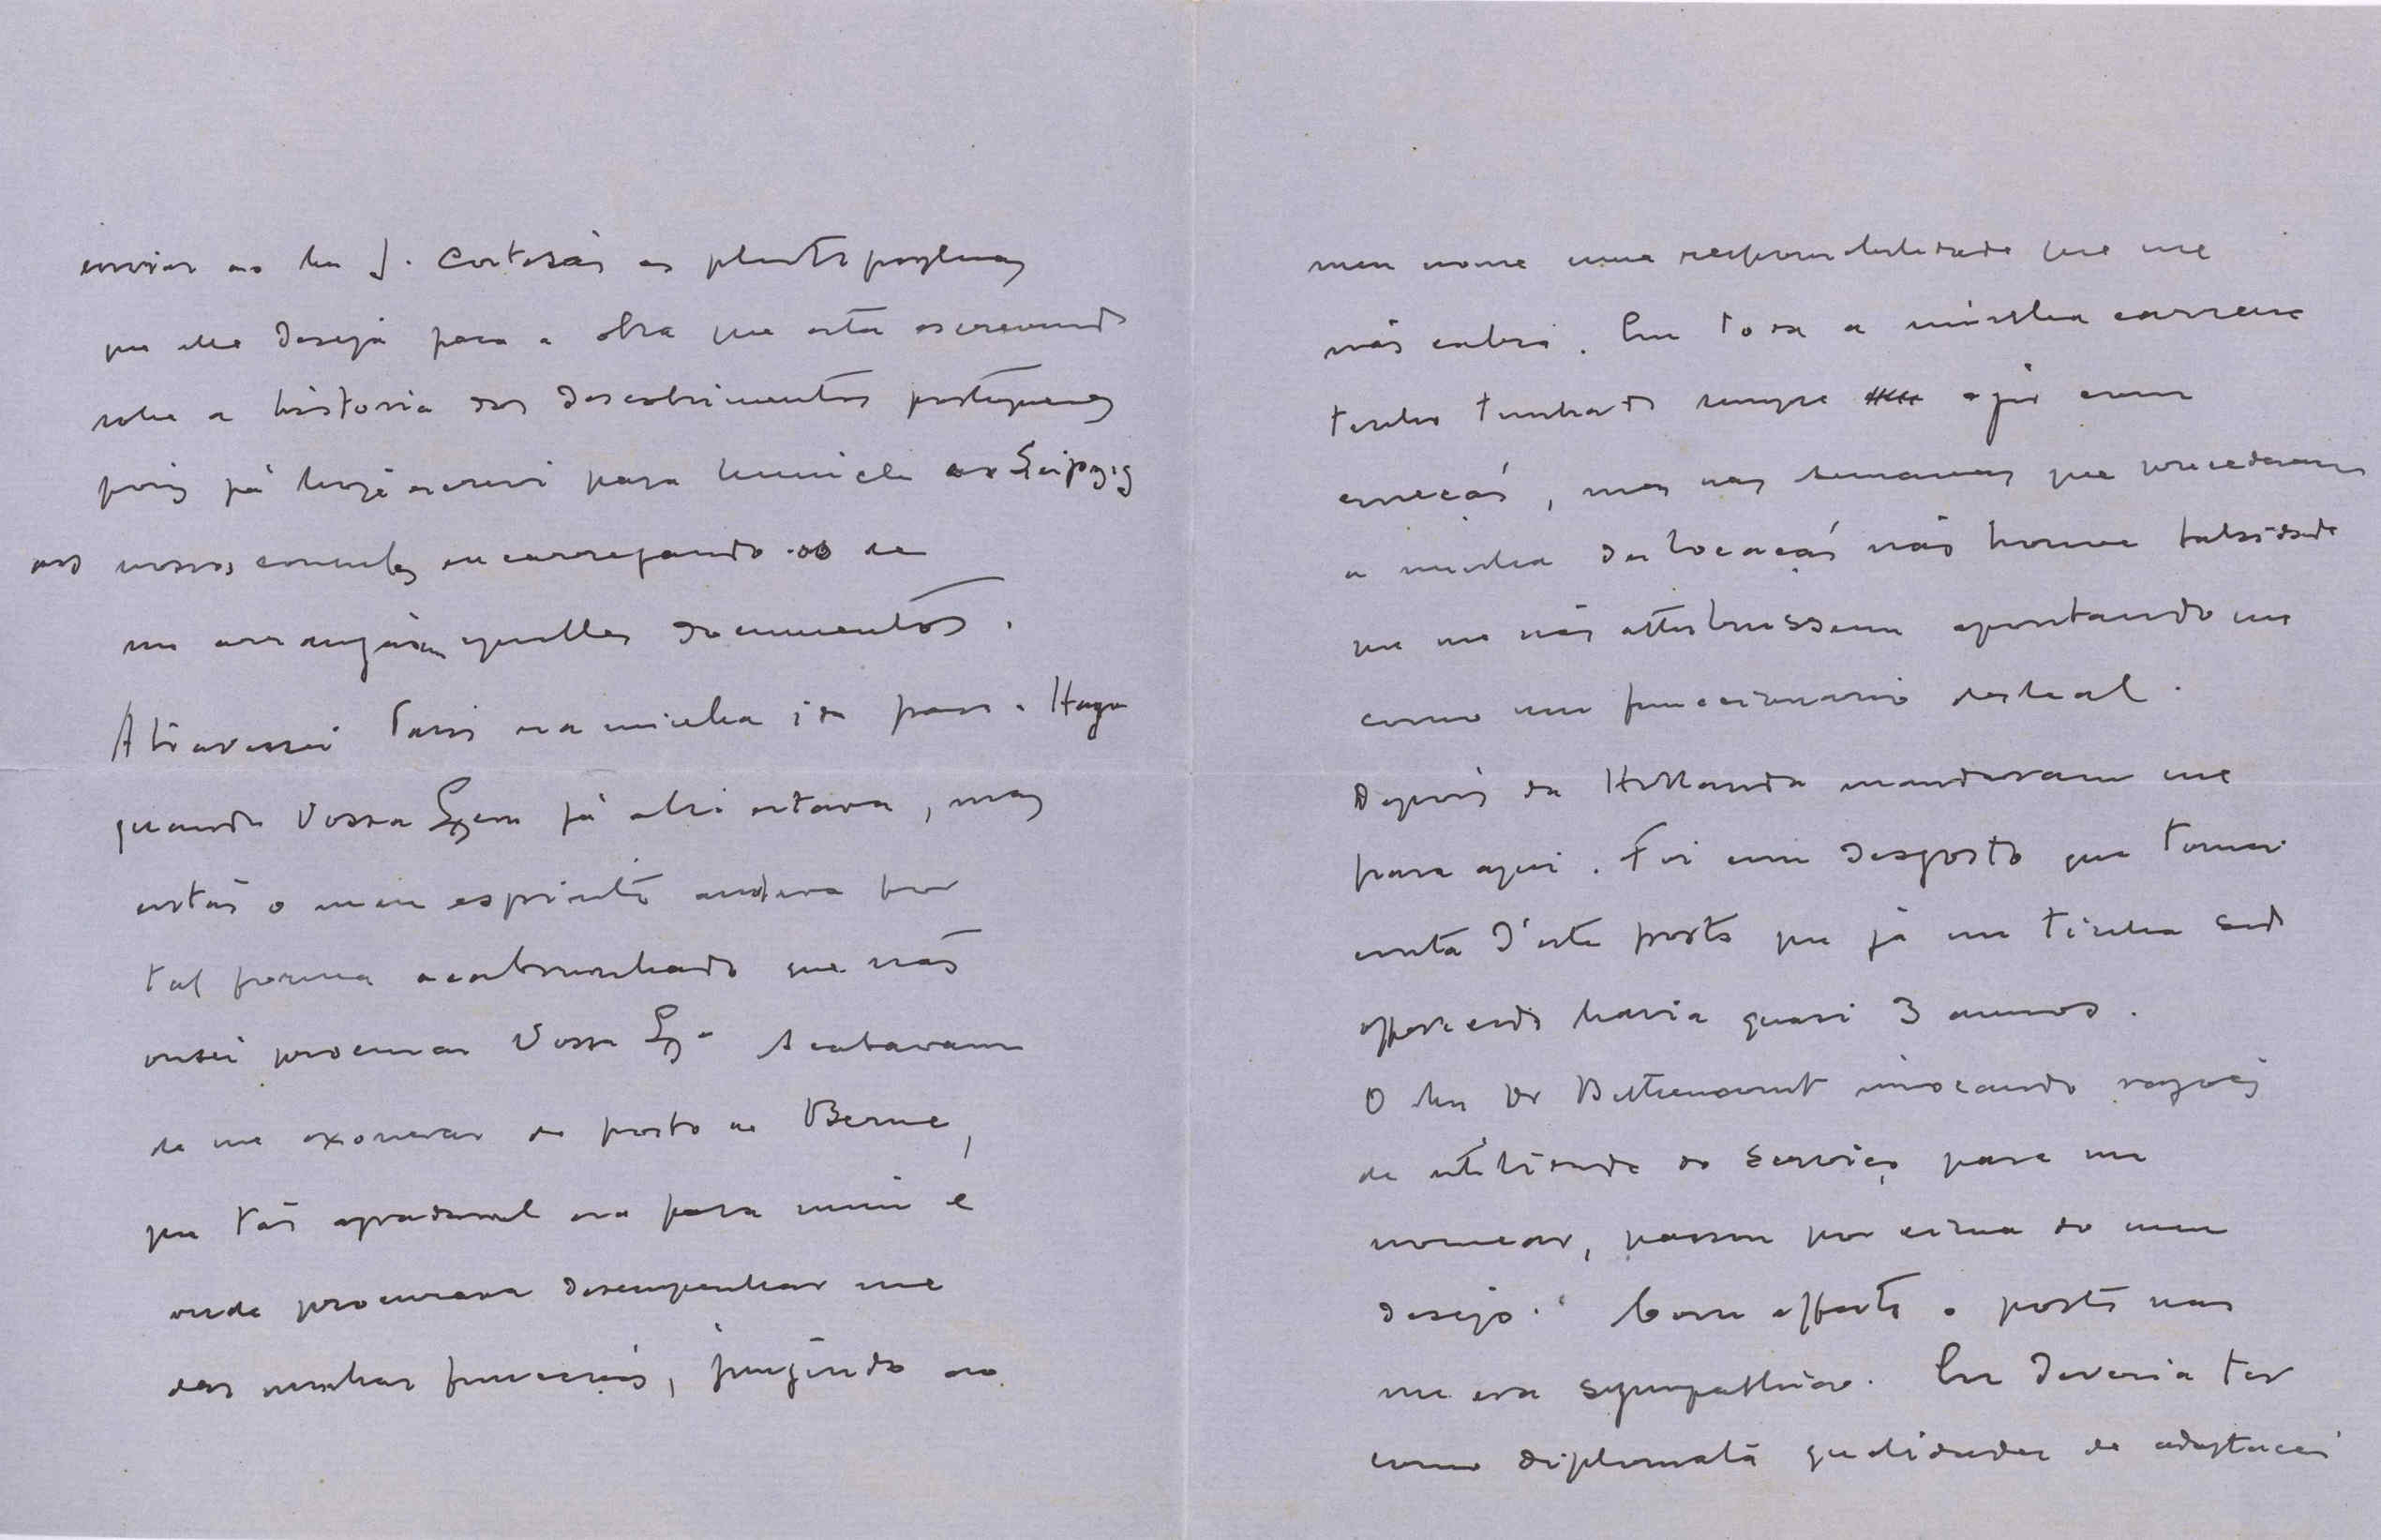 enviar ao Snr J. Cortesão as photographias
que elle deseja para a obra que está escrevendo
sobre a historia dos descobrimentos portuguezes
pois já hoje escrevi para Munich e Leipzig
aos nossos consules encarregando-os de
me arranjarem aquelles documentos.
Atravessei Paris na minha ida para a Haya
quando Vossa Excia já alli estava, mas
então o meu espirito andava por
tal forma acabrunhado que não
ousei procurar Vossa Exª Acabavam
de me exonerar do posto de Berne,
que tão agradavel era para mim e
onde procurara desempenhar me
das minhas funcções, jungindo ao
meu nome uma responsabilidade que me
não cabia. Em toda a minha carreira
tenho timbrado sempre agir com
correcção, mas nas semanas que precederam
a minha deslocação não houve falsidade
que me não attribuissem apontando me
como um funccionario desleal.
Depois da Hollanda mandaram me
para aqui. Foi com desgosto que tomei
conta d'este posto que já me tinha sido
offerecido havia quasi 3 annos.
O Snr Dr Bettencourt invocando razões
de utilidade do serviço para me
nomear, passou por cima do meu
desejo. Com effeito o posto não
me era sympathico. Eu deveria ter
como diplomata qualidades de adaptação